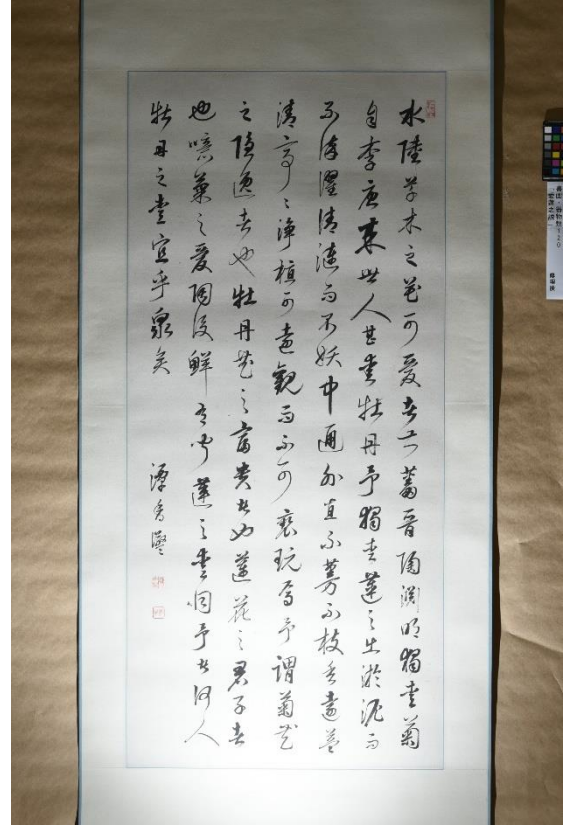 水陸草木之花可愛者甚蕃晉陶淵明獨愛菊
自李唐來世人甚愛牡丹予獨愛蓮之出淤泥而
不染濯清漣而不妖中通外直不蔓不枝香遠益
清亭亭淨植可遠觀而不可褻玩焉予謂菊花
之隱逸者也牡丹花之富貴者也蓮花之君子者
也噫菊之愛陶後鮮有聞蓮之愛同予者何人
牡丹之愛宜乎眾矣